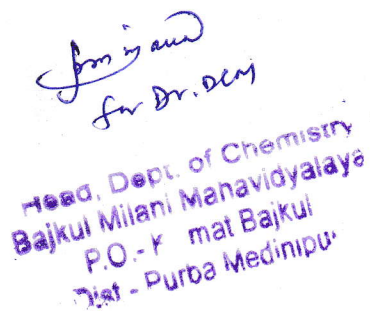 for Dr. 
Head, Dept. of Chemistry
Bajkul Milani Mahavidyalaya
P.O.- K mat Bajkul
Dist - Purba Medinipur